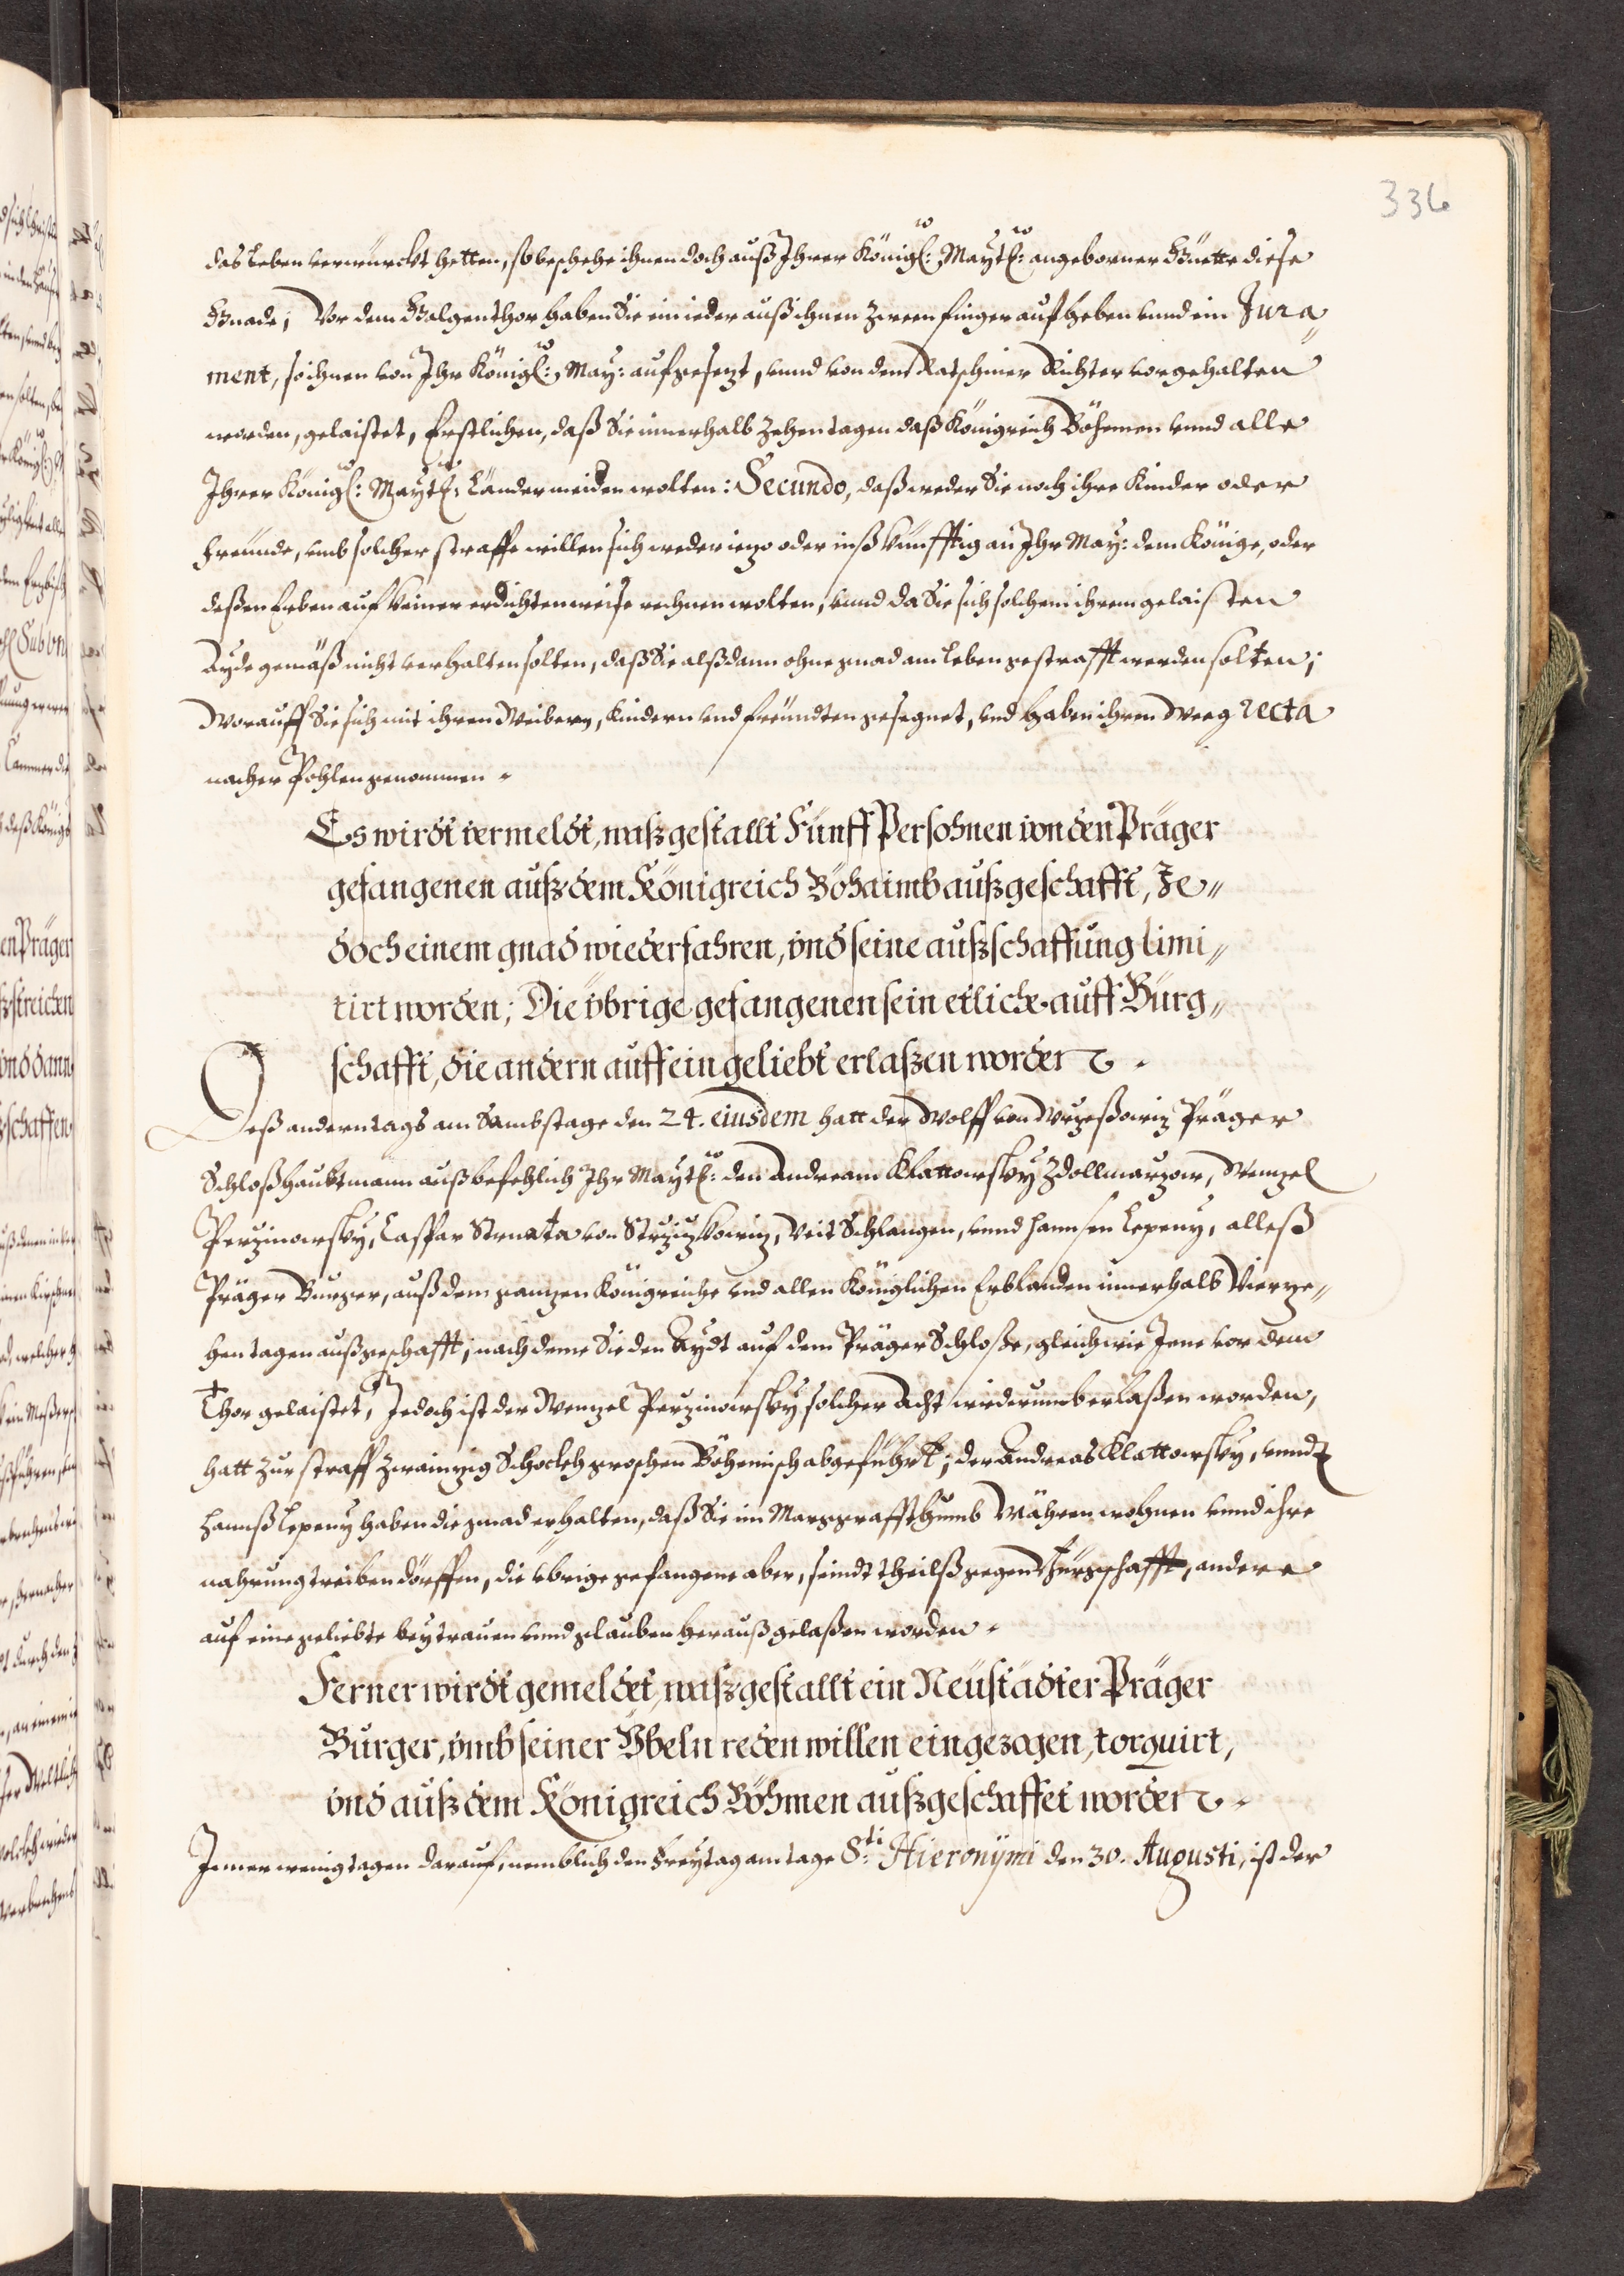 336
das Leben verwürckt hetten, so beschehe ihnen doch auß Ihrer Königl: Maytt: angeborner Güette diese
Gnade; Vor dem Galgenthor haben Sie ein ieder auß ihnen zween finger aufheben unnd ein Jura„
ment, so ihnen von Ihr Königl: May: aufgesezt, unnd von dem Ratschiner Richter vorgehalten
worden, gelaistet, Erstlichen, daß Sie innerhalb zehen tagen daß Königreich Böhemen unnd alle
Ihrer Königl: Maytt: Länder meiden wolten: Secundo, daß weder Sie noch ihre Kinder oder
freünde, umb solcher straffe willen sich weder iezo oder inß künfftig an Ihr May: dem Könige, oder
deßen Erben auf keiner erdichten weise rechnen wolten, unnd da Sie sich solchem ihrem gelaisten
Ayde gemäß nicht verhalten solten, daß Sie alßdann ohne gnad am leben gestrafft werden solten;
Worauff Sie sich mit ihren Weibern, Kindern und freündten gesegnet, und haben ihren Weeg recta
nacher Pohlen genommen.
Es wirdt vermeldt, waß gestallt Fünff Persohnen von den Präger
gefangenen auß dem Königreich Böhaimb außgeschafft, Je„
doch einem gnad wiederfahren, vnd seine außschaffung limi„
tirt worden; Die vbrige gefangenen sein etliche auff Bürg„
schafft, die andern auff ein geliebt erlaßen worden.
Deß andern tags am Sambstage den 24. eiusdem hatt der Wolff von Wrzeßowiz Präger
Schloßhaubtmann auß befehlich Ihr Maytt: den Andream Klattowsky Zdollmarzow, Wenzel
Perzinowsky, Caspar Strnata von Strziczkowiz, Veit Schlangen, unnd Hannsen Lepeny, alleß
Präger Burger, auß dem gantzen Königreiche und allen Königlichen Erblanden innerhalb Vierze„
hen tagen außgeschafft; nach deme Sie den Aydt auf dem Präger Schloße, gleich wie Jene vor dem
Thor gelaistet, Jedoch ist der Wenzel Perzinowsky solcher Acht wiederumb erlaßen worden,
hatt zur straff zwainzig Schockh groschen Böhemisch abgeführt; der Andreas Klattowsky, unndt
Hannß Lepeny haben die gnad erhalten, daß Sie im Marggraffthumb Mähren wohnen unnd ihre
nahrung treiben dörffen, die vbrige gefangene aber, seindt theilß gegen Bürgschafft, andere
auf eine geliebte bey trauen unnd glauben herauß gelaßen worden.
Ferner wirdt gemeldet, waß gestallt ein Neüstädter Präger
Burger, vmb seiner Vbeln reden willen eingezogen, torquirt,
vnd auß dem Königreich Böhmen außgeschaffet worden.
Inner wenig tagen darauf, nemblich den Freytag am tage Sti Hieronymi den 30. Augusti, ist der